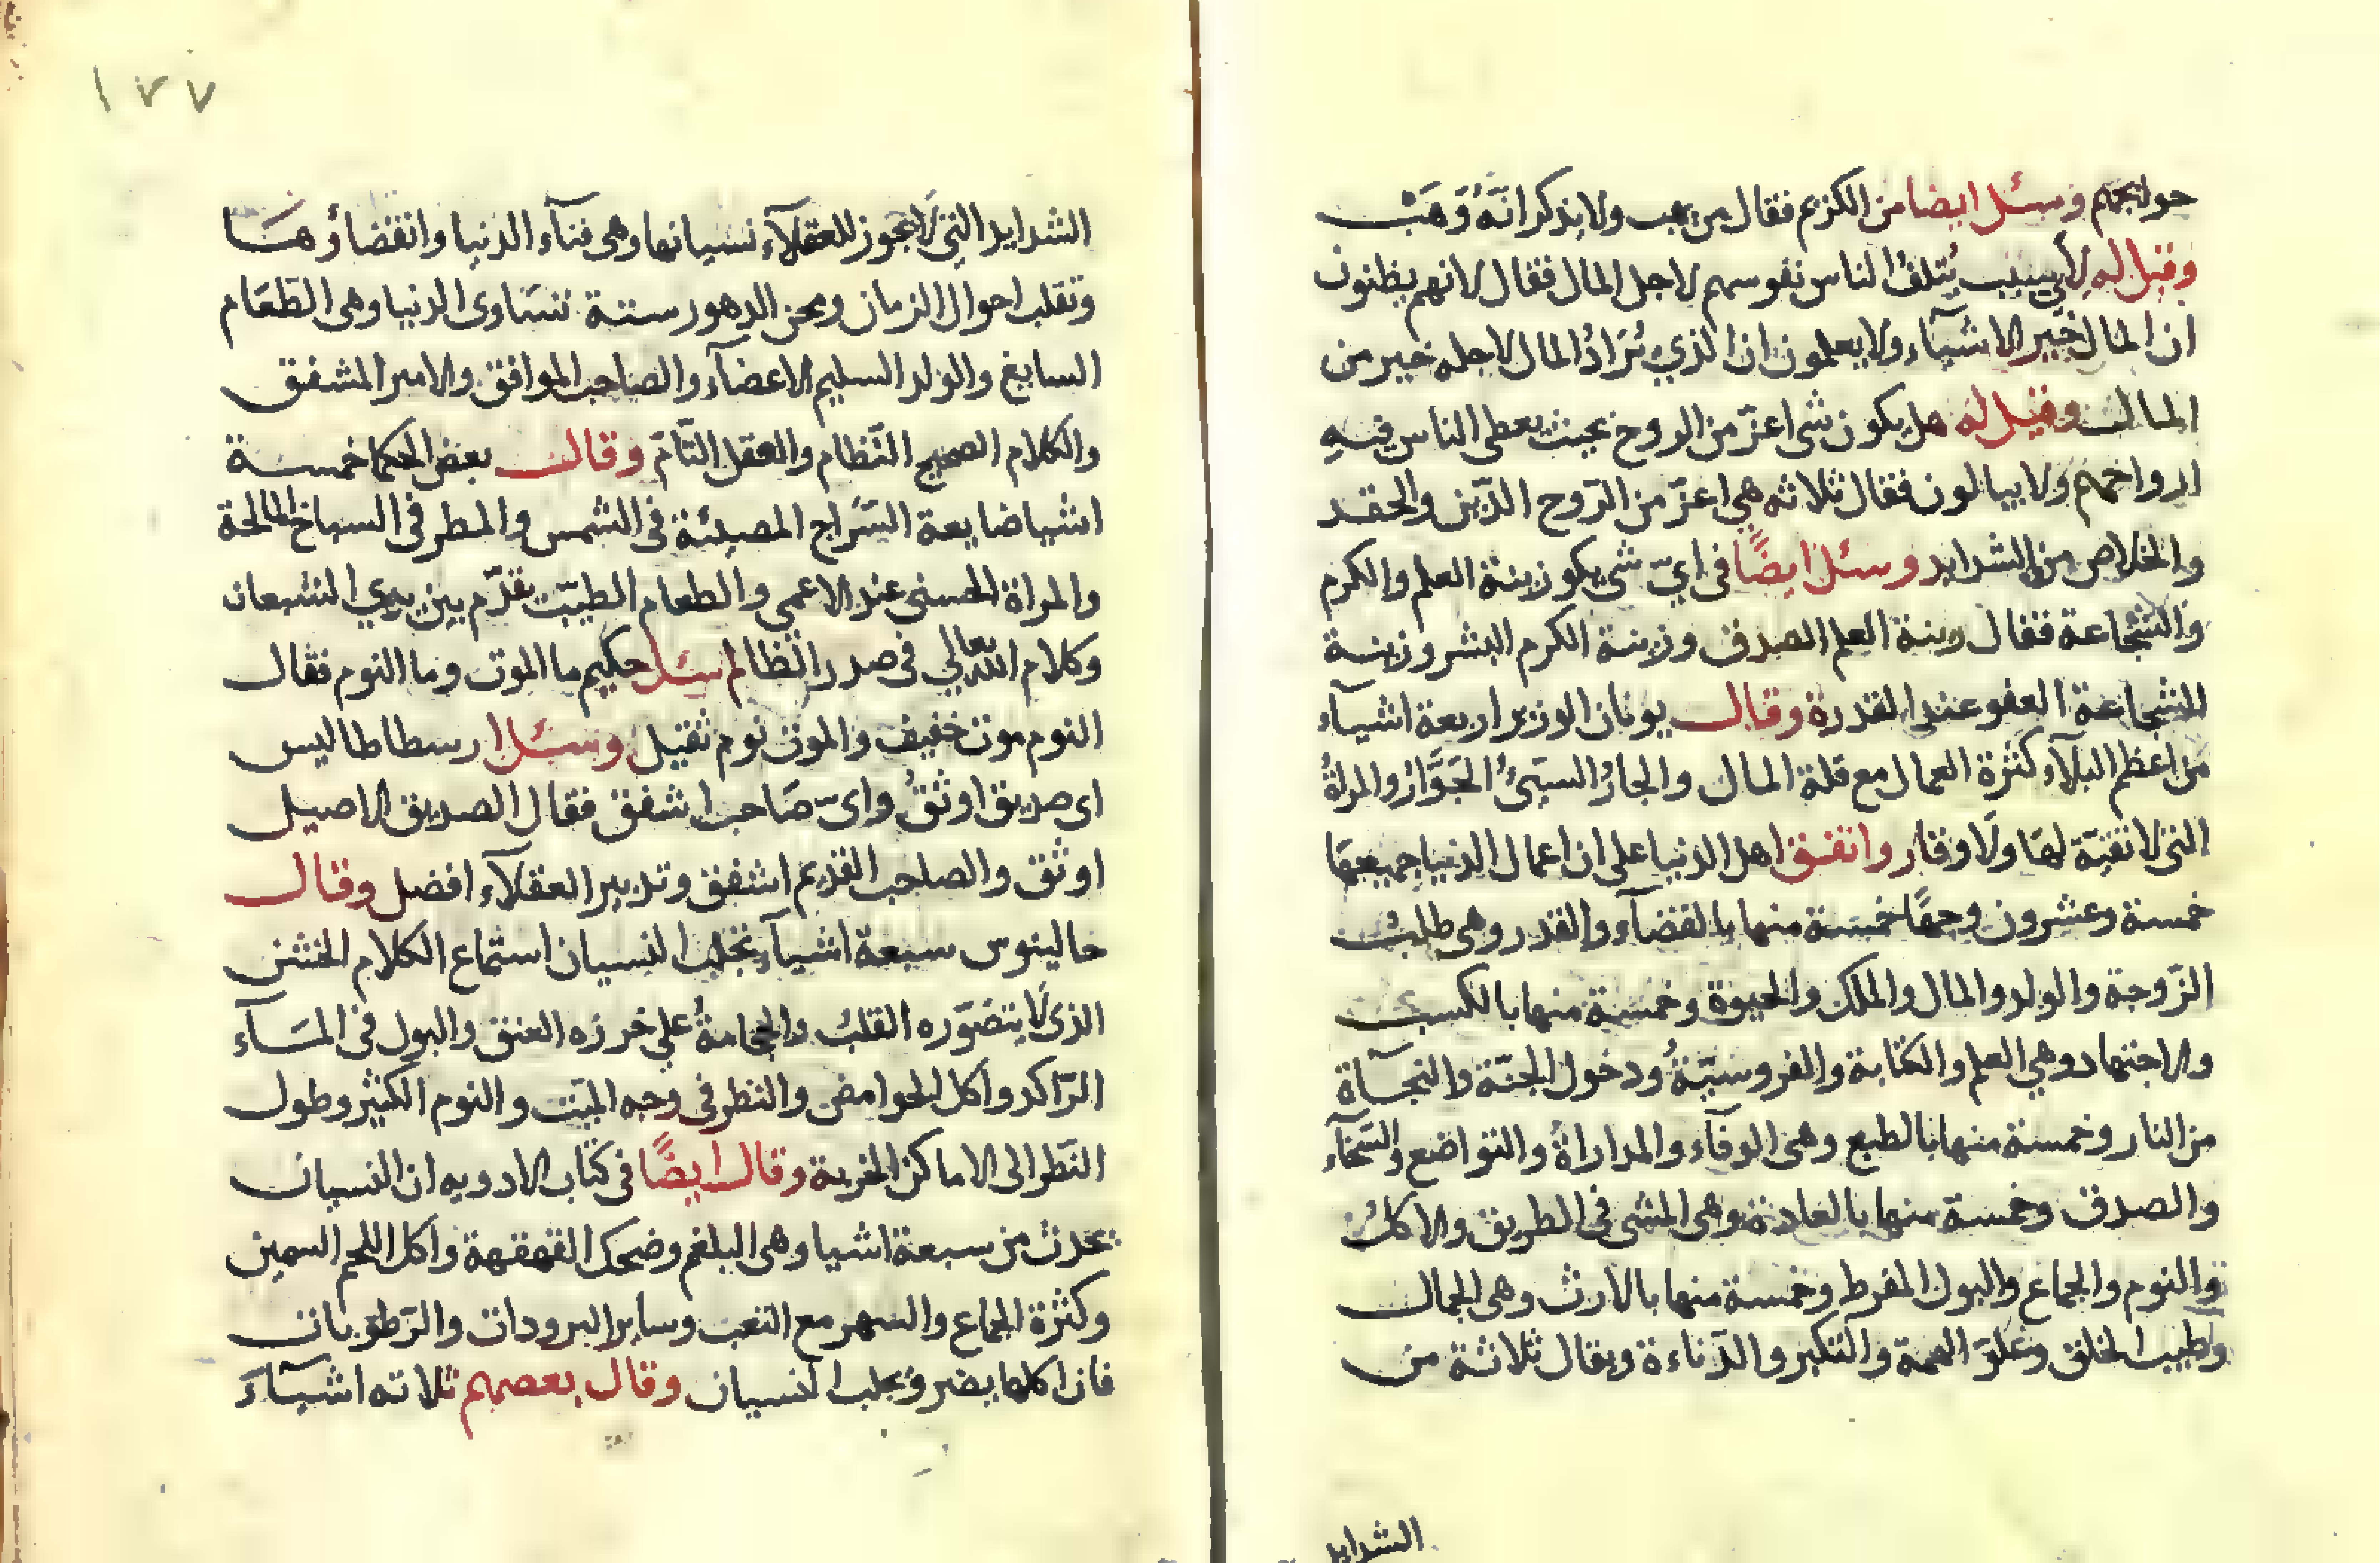 حوايجهم وسئل ايضا من الكريم فقال من يهب ولا يذكر انّه وَهَبْ
وقيل له لايّ سبب يُتلفُ الناس نفوسهم لاجل المال فقال لانهم يظنون
ان المال خَيّر الاشيآء ولا يعلمون ان الذي يُرَادُ المال لاجله خير من
المال وقيل له هل يكون شى اعزّ من الروح بحيث يعطى الناس فيه
ارواحهم ولا يبالون فقال ثلاثه هى اعزّ من الرّوح الدّين والحقد
والخلاص من الشدايد وسئل ايضًا في ايّ شى يكون زينة العلم والكرم
والشجاعة فقال زينة العلم الصدق وزينة الكرم البشر وزينة
الشجاعة العفو عند القدرة وقال يونان الوزير اربعة اشيآء
من اعظم البلآء كثرة العيال مع قلة المال والجارُ السيّئُ الجَوَّارُ والمراةُ
التى لا تقيّة لهَا ولَا وقار واتفق اهل الدنيا على ان اعمال الدنيا جميعهَا
خمسة وعشرون وجهًا خمسة منها بالقضآء والقدر وهى طلبُ
الزّوجة والولد والمال والملك والحيوة وخمسة منها بالكسب
والاجتهاد وهي العلم والكتابة والفروسيّةُ ودخول الجنّة والنجآة
من النار وخمسة منها بالطبع وهى الوفآء والمداراةُ والتواضع والسّخآء
والصدق وخمسة منها بالعادة وهى المشى في الطريق والاكلُ
والنوم والجماع والبول المفرط وخمسة منها بالارث وهى الجمال
وطيب الخلق وعلوّ الهمة والتكبر والدّناءة ويقال ثلاثة من
الشدايد
١٢٧
الشدايد التى لَا يجوز للعقلآء نسيانها وهى فنآء الدنيا وانقضاؤهَا
وتقلب احوال الزمان ومحن الدهور ستة تسَاوى الدنيا وهى الطعَام
السايغ والولد السليم الاعضآء والصاحب الموافق والامير المشفق
والكلام الصحيح النّظام والعقل التّامّ وقال بعض الحكما خمسة
اشيا ضايعة السّرَاج المضيئة في الشمس والمطر فى السباخ المالحة
والمراة الحسنى عند الاعمى والطعام الطيّب يقدّم بين يدي الشبعان
وكلام الله تعالى فى صدر الظالم سئل حكيم ما الموت وما النوم فقال
النوم موت خفيف والموت نوم ثقيل وسئل ارسطاطاليس
اى صديق اوثقُ وايّ صَاحب اشفق فقال الصديق الاصيل
اوثق والصاحب القديم اشفق وتدبير العقلآء افضل وقال
جالينوس سبعة اشيآء تجلب النسيان استماع الكلام الخشن
الذى لَا يتصوّره القلبُ والحجامةُ على خرزه العنق والبول فى المَآء
الرّاكد واكل الحوامض والنظر فى وجه الميّت والنوم الكثير وطول
النّظر الى الاماكن الخربة وقال ايضًا فى كتاب الادويه ان النسيان
يحدث من سبعة اشيا وهى البلغم وضحك القهقهة واكل اللحم السمين
وكثرة الجماع والسهر مع التعب وساير البرودات والرّطوبات
فان اكلها يضر ويجلب النسيان وقال بعضهم ثلاثه اشيآء